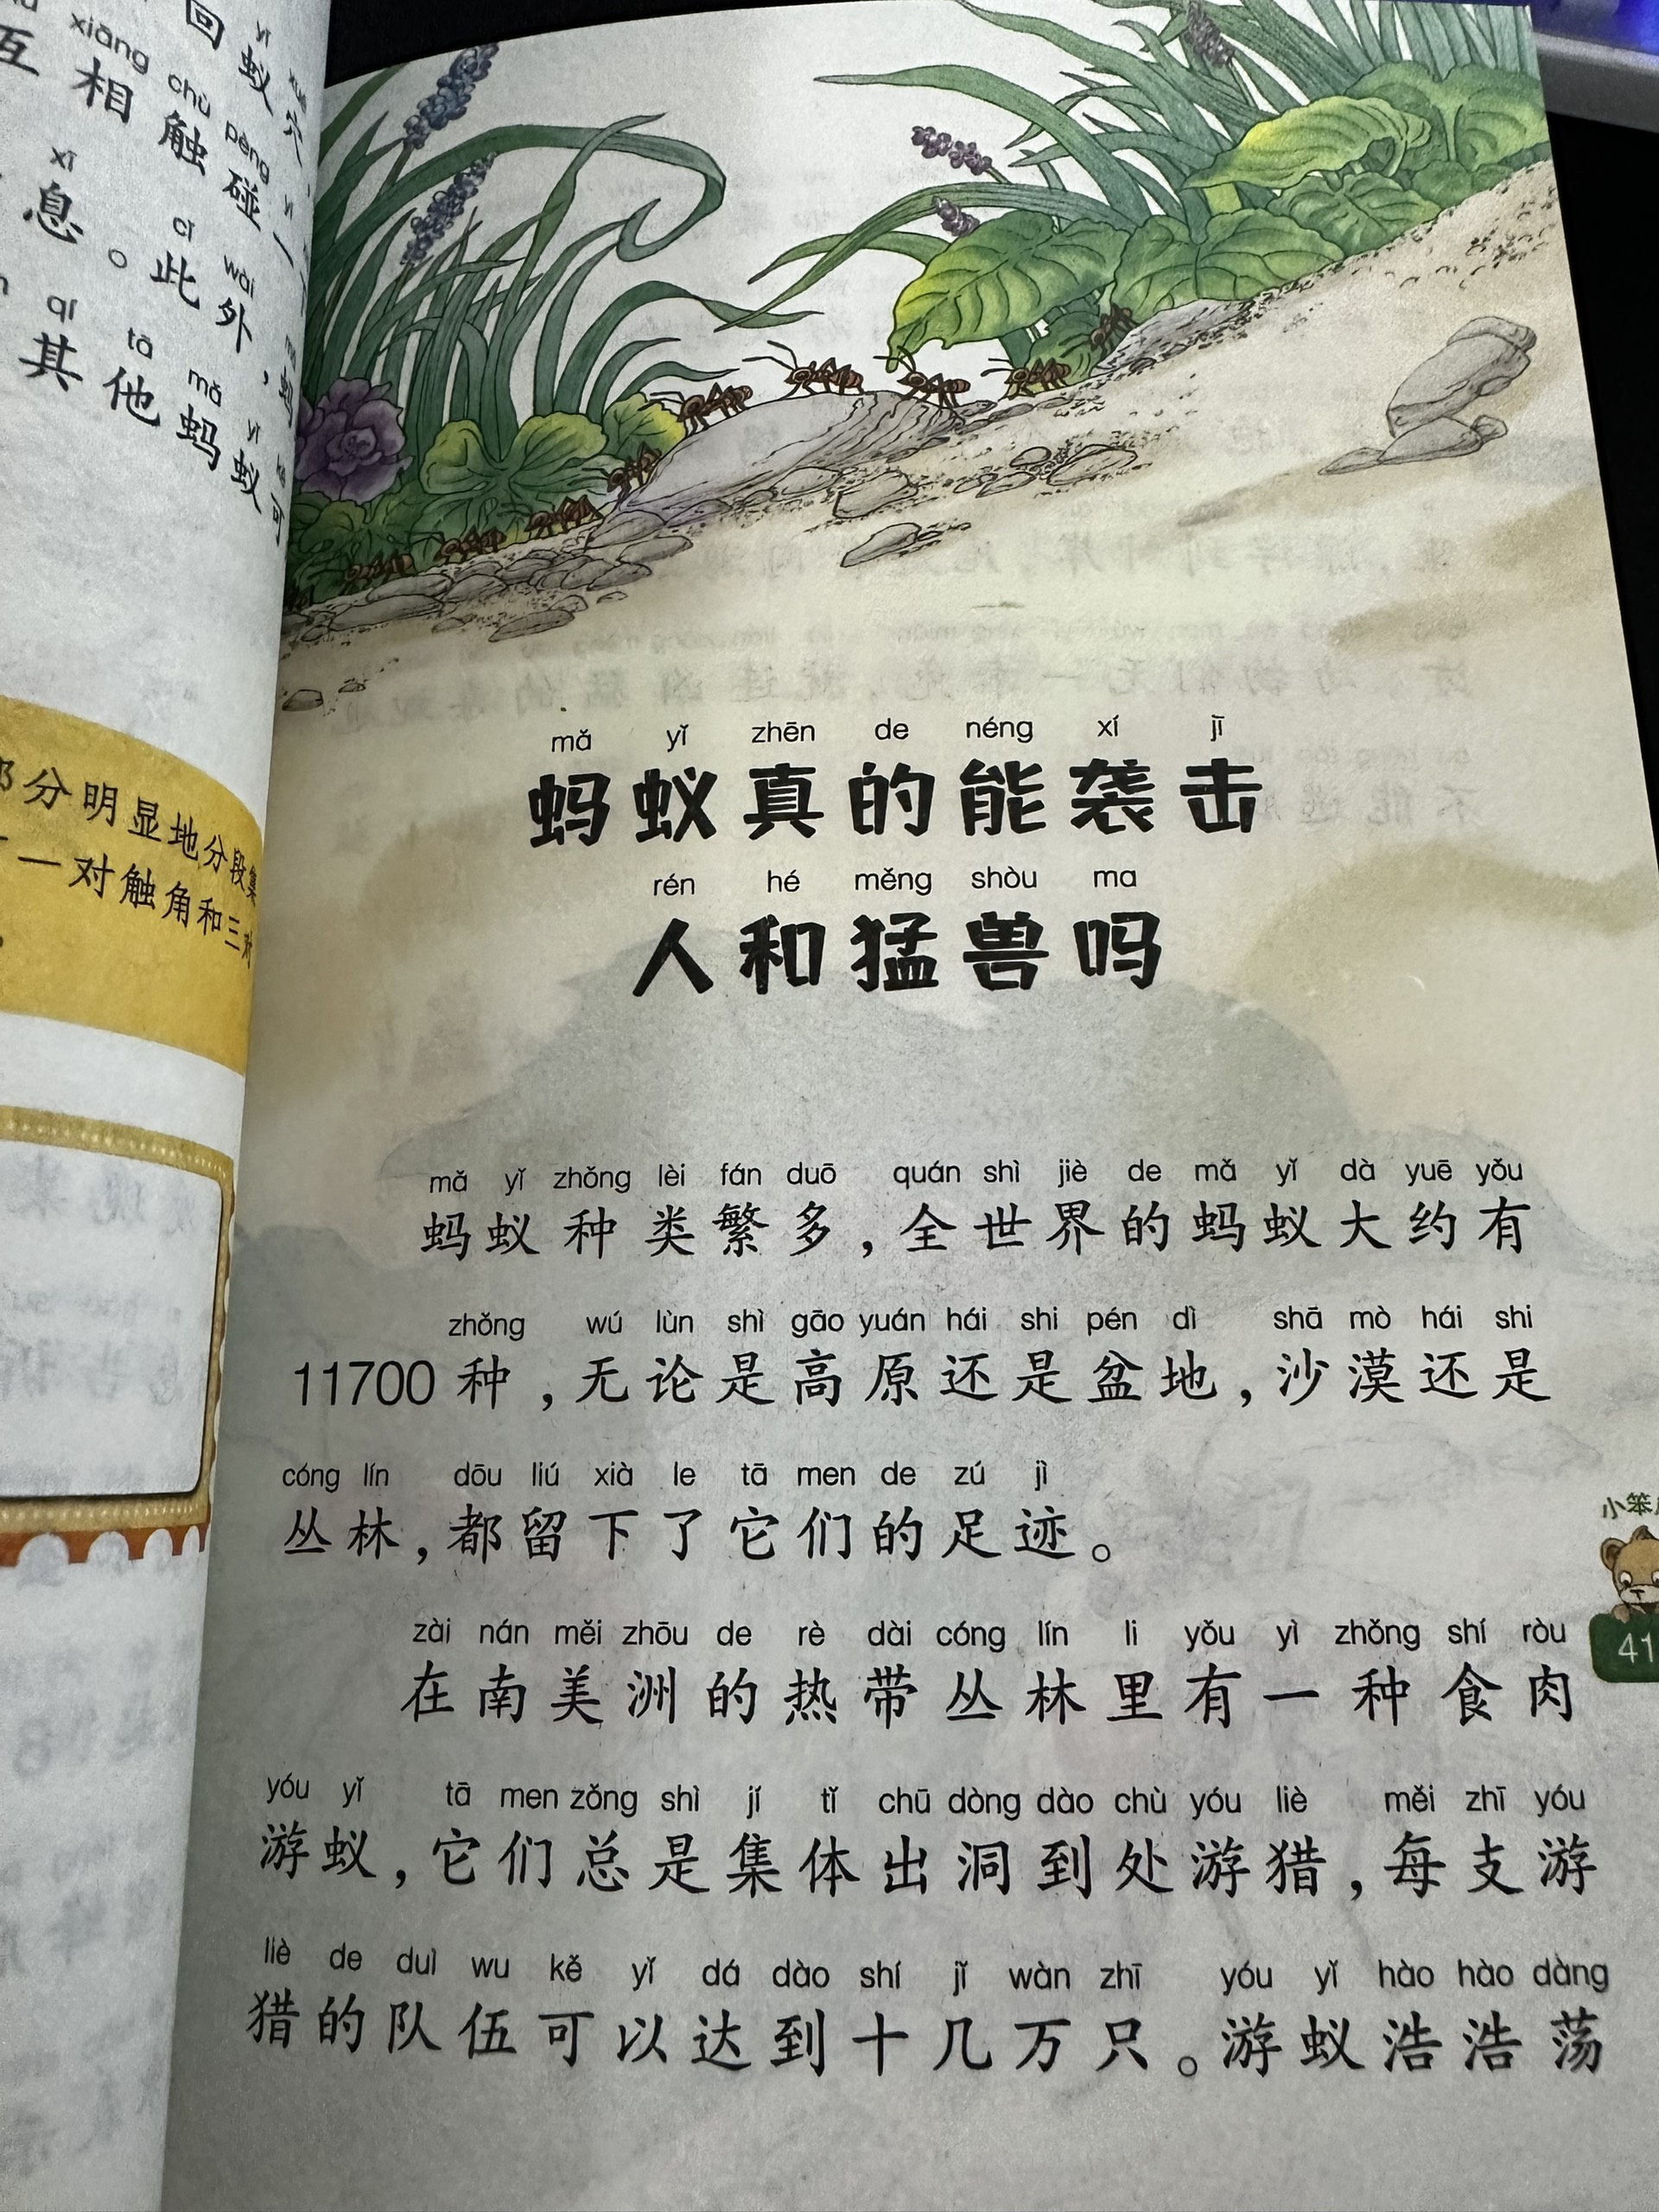 回蚁穴,
xiāng chù pèng yí
互相触碰一
xī cǐ wài
息。此外,蚂
qí tā mǎ yǐ kě
其他蚂蚁可
部分明显地分段集
一对触角和三对
mǎ yǐ zhēn de néng xí jī
蚂蚁真的能袭击
rén hé měng shòu ma
人和猛兽吗
mǎ yǐ zhǒng lèi fán duō quán shì jiè de mǎ yǐ dà yuē yǒu
蚂蚁种类繁多,全世界的蚂蚁大约有
zhǒng wú lùn shì gāo yuán hái shi pén dì shā mò hái shi
11700种,无论是高原还是盆地,沙漠还是
cóng lín dōu liú xià le tā men de zú jì
丛林,都留下了它们的足迹。
zài nán měi zhōu de rè dài cóng lín li yǒu yì zhǒng shí ròu
在南美洲的热带丛林里有一种食肉
yóu yǐ tā men zǒng shì jí tǐ chū dòng dào chù yóu liè měi zhī yóu
游蚁,它们总是集体出洞到处游猎,每支游
liè de duì wu kě yǐ dá dào shí jǐ wàn zhī yóu yǐ hào hào dàng
猎的队伍可以达到十几万只。游蚁浩浩荡
小笨
41